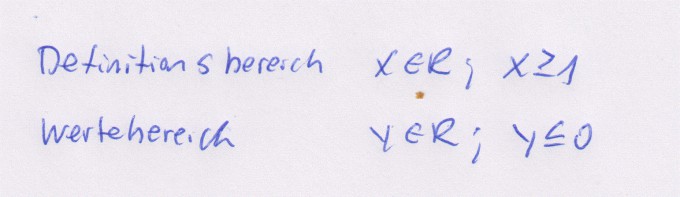 Definitionsbereich x ∈ R; x ≥ 1
Wertebereich y ∈ R; y ≤ 0